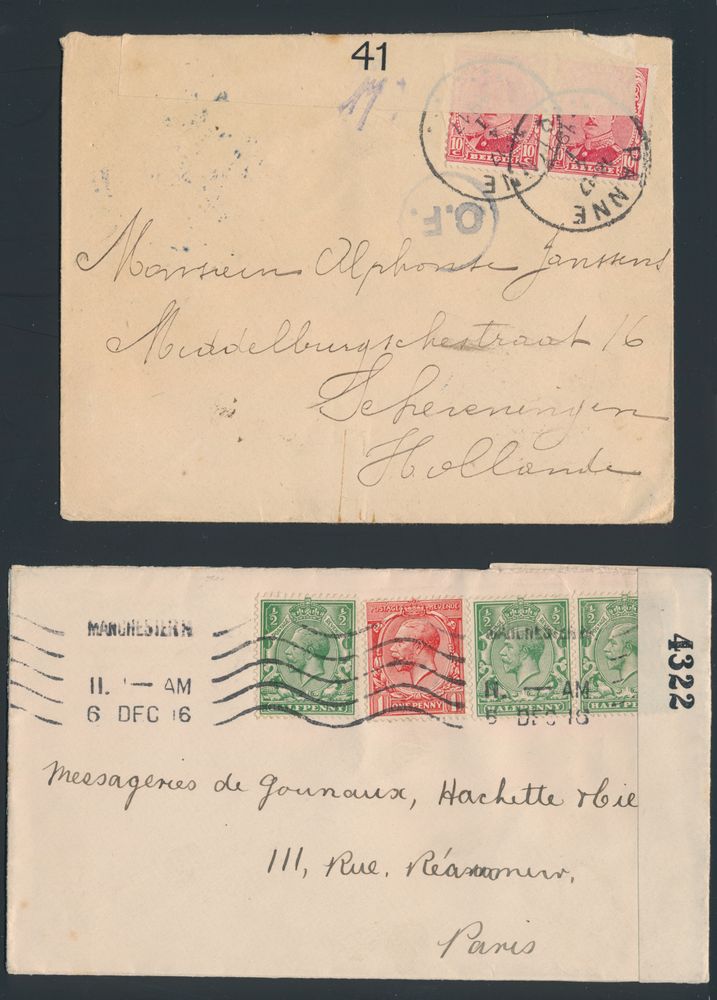 41
10 BELGIË 10
10
PANNE
NE
O.F.
Monsieur Alphonse Janssens
Middelburgschestraat 16
Scheveningen
Hollande
MANCHESTER N
11. — AM
6 DEC 16
½ ½
HALFPENNY
POSTAGE REVENUE
1 ONE PENNY
½ ½
HALFPENNY
½
HALFPE
MANCHESTER N
11. — AM
6 DEC 16
4322
Messageries de Gounaux, Hachette & Cie
111, Rue. Réaumur.
Paris